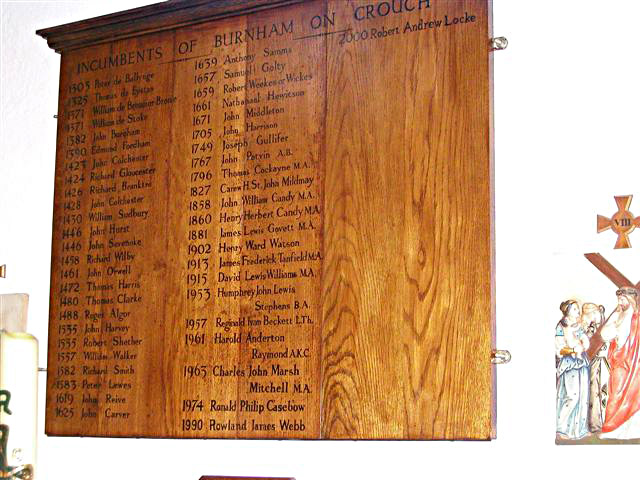 INCUMBENTS OF BURNHAM ON CROUCH
1303 Peter de Ballynge
1325 Thomas de
1371 William de or Brome
1371 William de Stoke
1382 John Boreham
1390 Edmund Fordham
1423 John Colchester
1424 Richard Gloucester
1426 Richard
1428 John Colchester
1430 William Sudbury
1446 John Hurst
1446 John Sevenoke
1458 Richard Wilby
1461 John Orwell
1472 Thomas Harris
1480 Thomas Clarke
1488 Roger Algor
1535 John Harvey
1555 Robert Shether
1557 William Walker
1582 Richard Smith
1583 Peter Lewes
1619 John Reive
1625 John Carver
1639 Anthony Samms
1657 Samuel Golty
1659 Robert Weekes or Wickes
1661 Nathanael Hewitson
1671 John Middleton
1705 John Harrison
1749 Joseph Gullifer
1767 John Potvin A.B.
1796 Thomas Cockayne M.A.
1827 Carew H. St. John Mildmay
1858 John William Candy M.A.
1860 Henry Herbert Candy M.A.
1881 James Lewis Govett M.A.
1902 Henry Ward Watson
1913 James Frederick Tanfield M.A.
1915 David Lewis Williams M.A.
1953 Humphrey John Lewis
Stephens B.A.
1957 Reginald Ivan Beckett L.Th.
1961 Harold Anderton
Raymond A.K.C.
1963 Charles John Marsh
Mitchell M.A.
1974 Ronald Philip Casebow
1990 Rowland James Webb
2000 Robert Andrew Locke
VIII